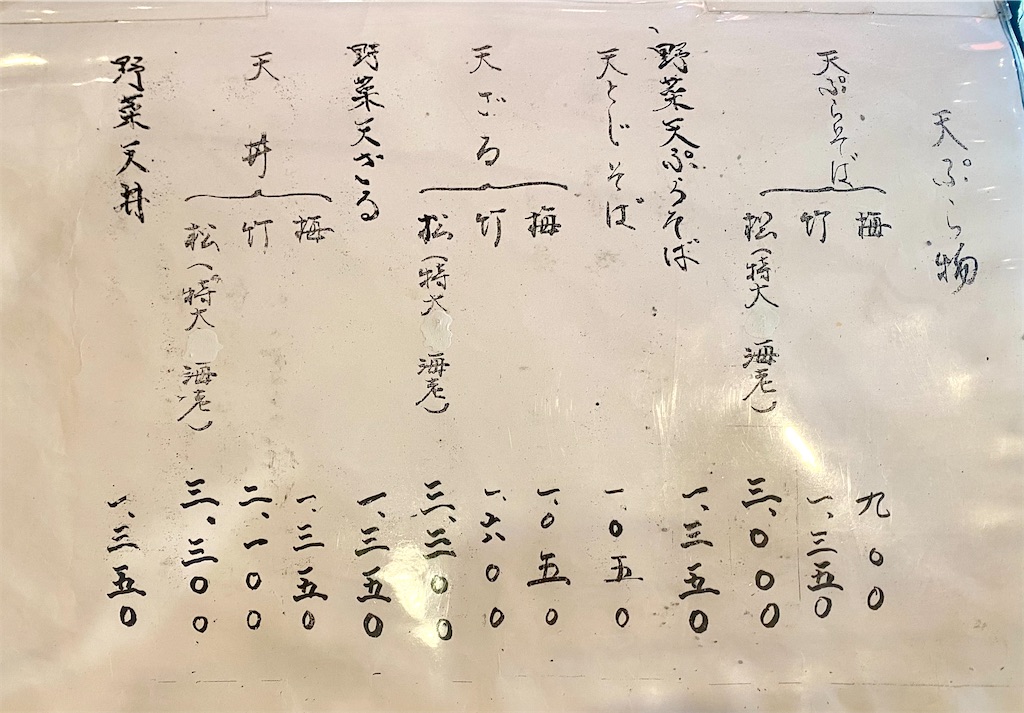 天ぷら物
天ぷらそば
梅 九〇〇
竹 一、三五〇
松(特大 海老) 三、〇〇〇
野菜天ぷらそば 一、三五〇
天とじそば 一、〇五〇
天ざる
梅 一、〇五〇
竹 一、六〇〇
松(特大 海老) 三、三〇〇
野菜天ざる 一、三五〇
天丼
梅 一、三五〇
竹 二、一〇〇
松(特大 海老) 三、三〇〇
野菜天丼 一、三五〇